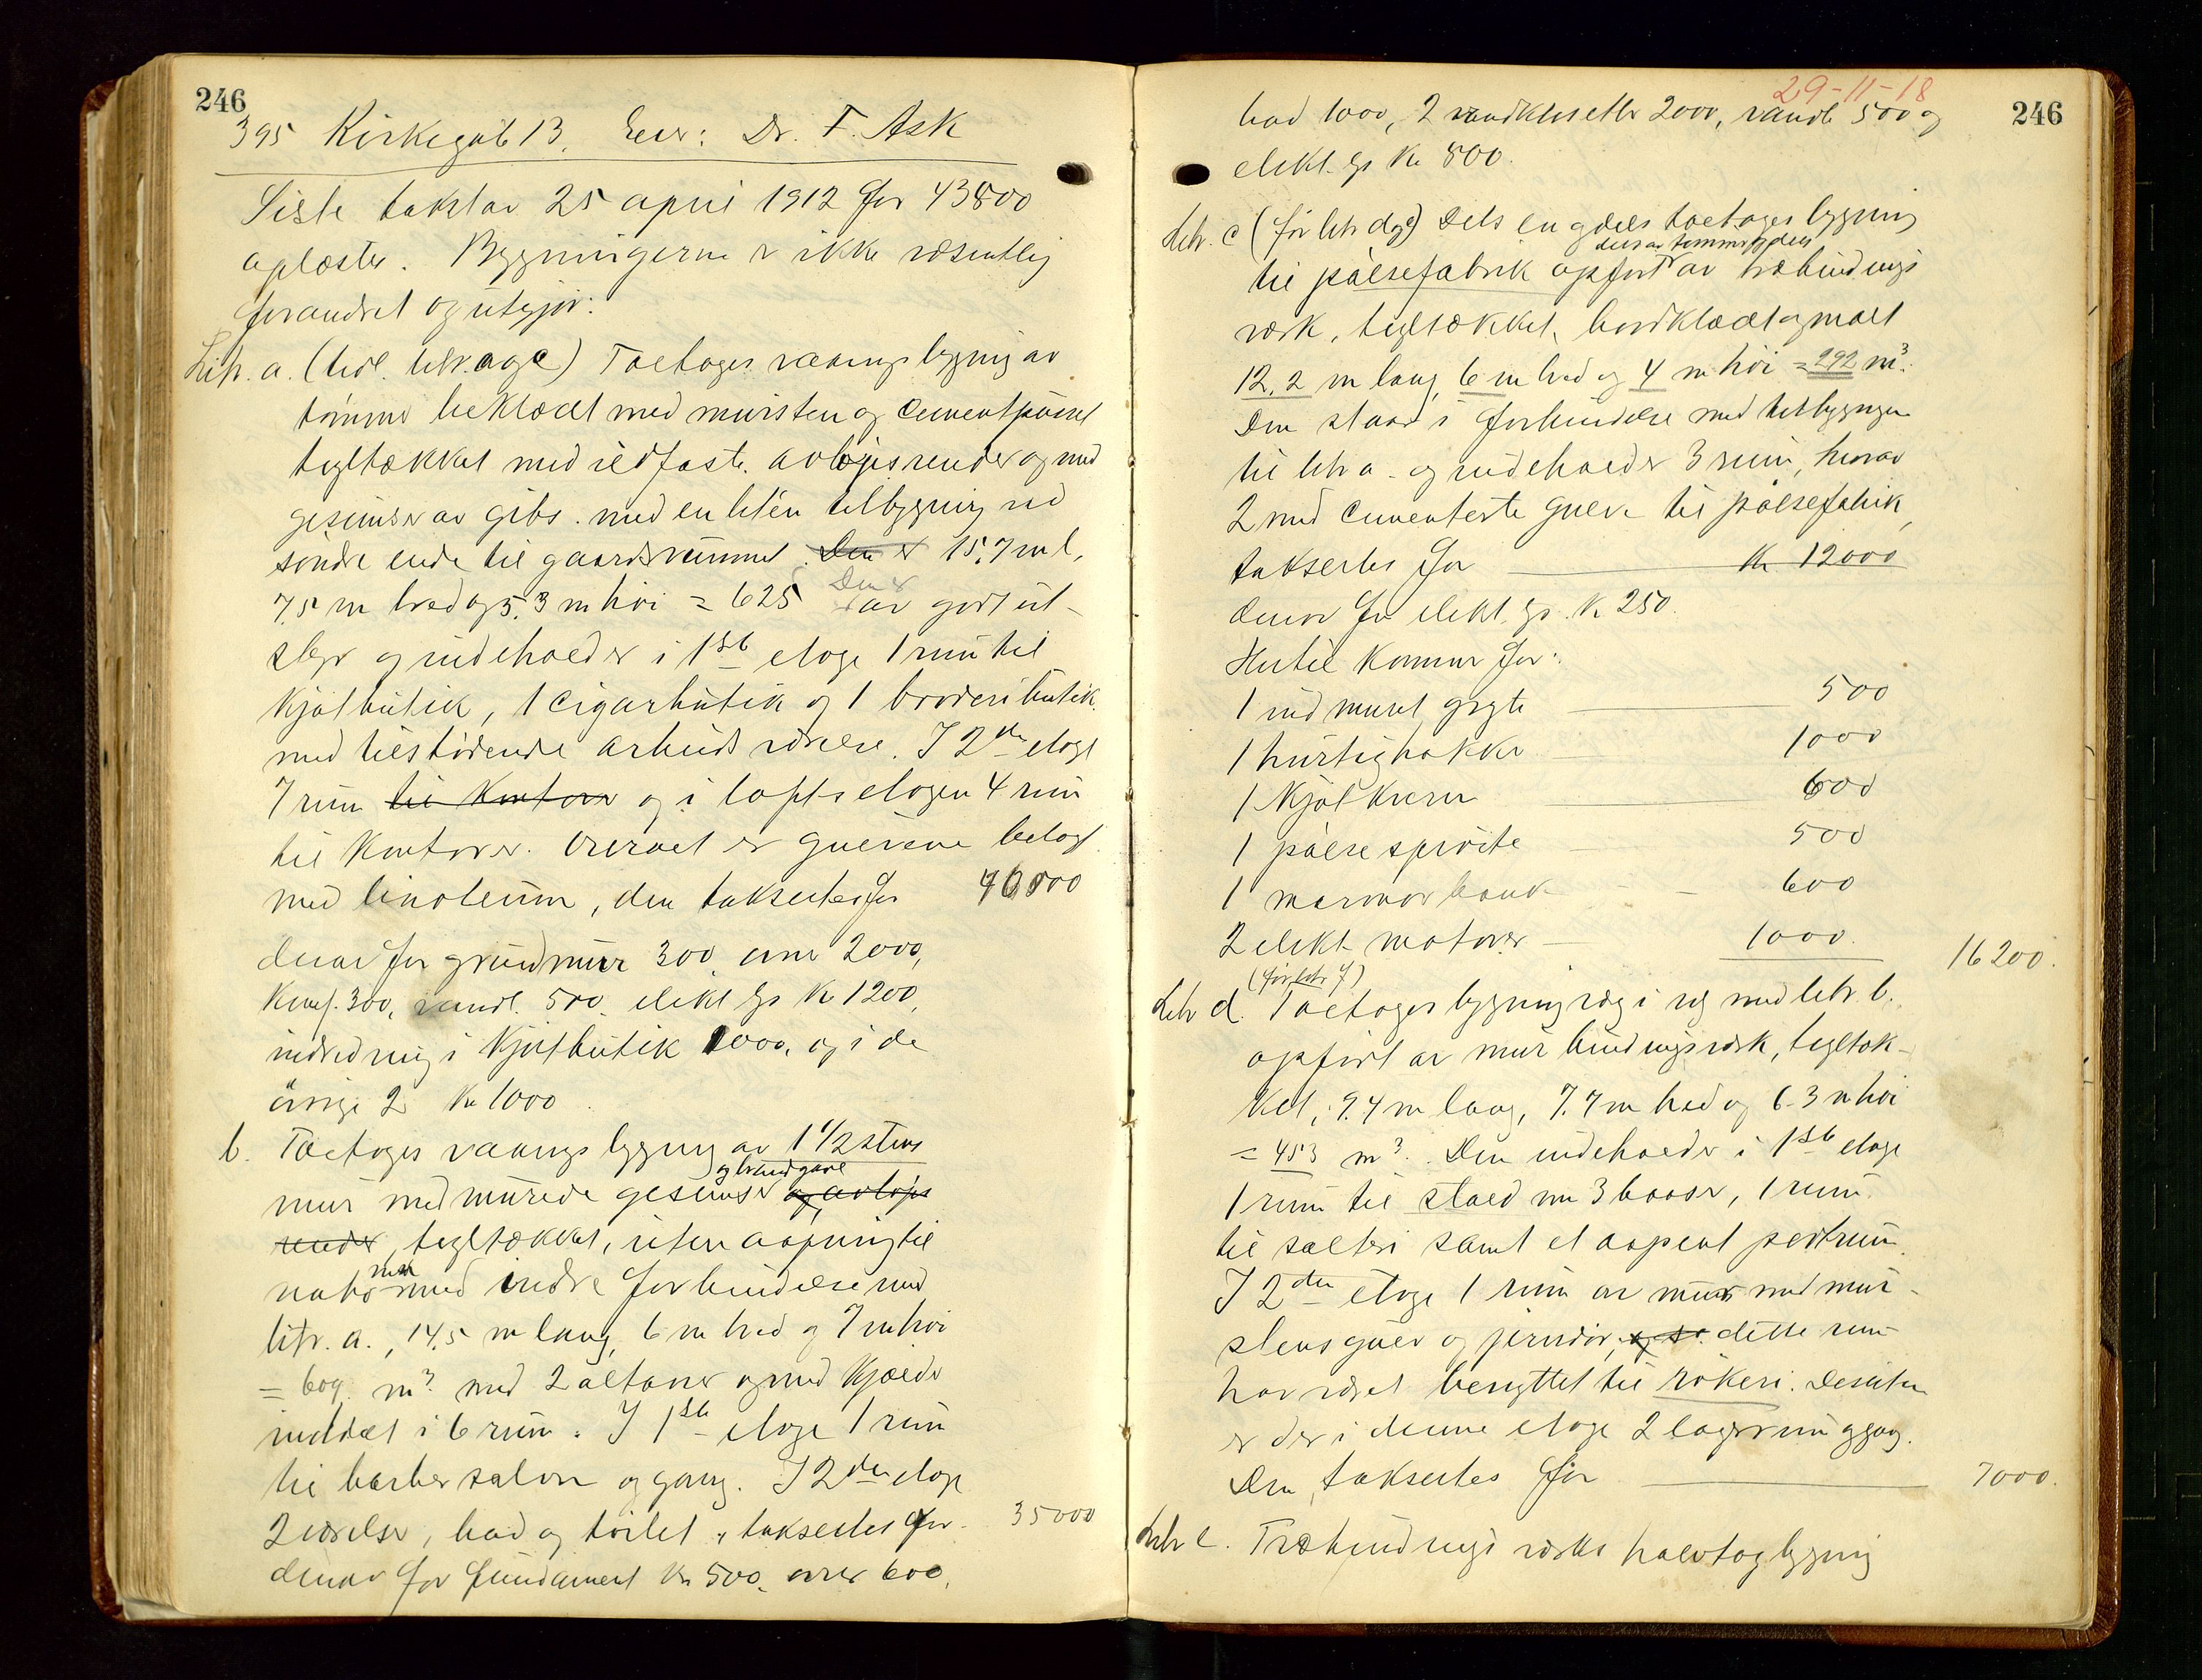 246
395 Kirkegat 13. Eier: Dr. F. Ask
Siste takst av 25 april 1912 for 43800
oplæstes. Bygningerne er ikke væsentlig
forandret og utgjør:
Litr. a. (tidl. litr. a og c) Toetages vaaningsbygning av
tømmer beklædt med mursten og cementpusset
tegltækket med vedfaste avløpsrender og med
gesimser av gibs. med en liten tilbygning ved
søndre ende til gaardsrummet. Den er 15,7 m l,
7,5 m bred og 5,3 m høi = 625 Den er av godt ut-
styr og indeholder i 1ste etage 1 rum til
kjøtbutik, 1 cigarbutik og 1 brodeributik
med tilstødende arbeidsværelse. I 2den etage
7 rum til kontorer og i loftsetagen 4 rum
til kontorer. Overalt er gulvene belagt
med linoleum, den takseres for 70500
derav for grundmur 300, ovne 2000,
komf. 300, vandl. 500, elekt lys Kr 1200,
indredning i kjøtbutik 1000, og i de
øvrige 2 Kr 1000.
b. Toetages vaaningsbygning av 1 1/2 stens
og brandgavl
mur med murede gesimser og avløps
render, tegltækket, uten aapning til
nabo men med indre forbindelse med
litr. a., 14,5 m lang, 6 m bred og 7 m høi
= 609 m3. med 2 altaner og med kjælder
inddelt i 6 rum. I 1ste etage 1 rum
til barbersalon og gang. I 2den etage
2 værelser, bad og toilet, takseres for 35000
derav for fundament Kr 500, ovner 600,
29-11-18
246
bad 1000, 2 vandklosetter 2000, vandl 500 og
elekt. lys Kr 800.
Litr. c (før litr d og e) Dels en og dels toetages bygning
dels av tømmer og dels
til pølsefabrik opført av træbindings
verk, tegltækket, bordklædt og malt
12,2 m lang, 6 m bred og 4 m høi = 292 m3.
Den staar i forbindelse med tilbygningen
til litr a. og indeholder 3 rum, hvorav
2 med cementerte gulve til pølsefabrik,
takseres for Kr 12000
derav for elekt. lys Kr 250.
Hertil kommer for:
1 indmuret gryte 500
1 hurtighakker 1000
1 kjøtkvern 600
1 pølsesprøite 500
1 marmorbænk 600
2 elekt. motorer 1000.
16200.
(før litr f)
Litr d. Toetages bygning væg i væg med litr. b.
opført av murbindingsverk, tegltæk-
ket, 9.4 m lang, 7.7 m bred og 6.3 m høi
= 453 m3. Den indeholder i 1ste etage
1 rum til stald m 3 baaser, 1 rum
til salteri samt et aapent portrum.
I 2den etage 1 rum av mur med mur-
stensgulv og jerndør, dette rum
har været benyttet til røkeri. Desuten
er der i denne etage 2 lagerrum og gang.
Den takseres for 7000.
Litr e. Træbindingsverks halvtagbygning